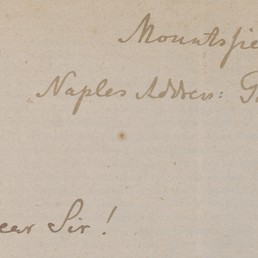 Mountsfie
Naples Address:
ear Sir!